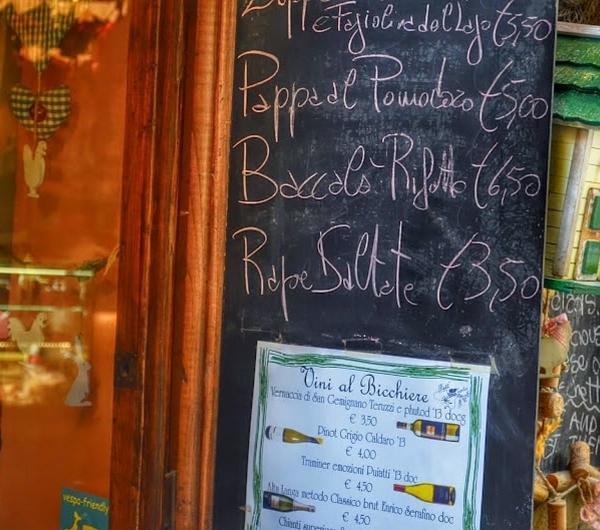 Zuppa
e Fagiolina del Lago €5,50
Pappa al Pomodoro €5,00
Baccalà Rifatto €6,50
Rape Saltate €3,50
Vini al Bicchiere
Vernaccia di San Gemignano Teruzzi e phutod '13 docg
€ 3,50
Pinot Grigio Caldaro '13
€ 4,00
Traminer emozioni Puiatti '13 doc
€ 4,50
Alta Langa metodo Classico brut Enrico Serafino doc
€ 4,50
Chianti
vespa-friendly
AND